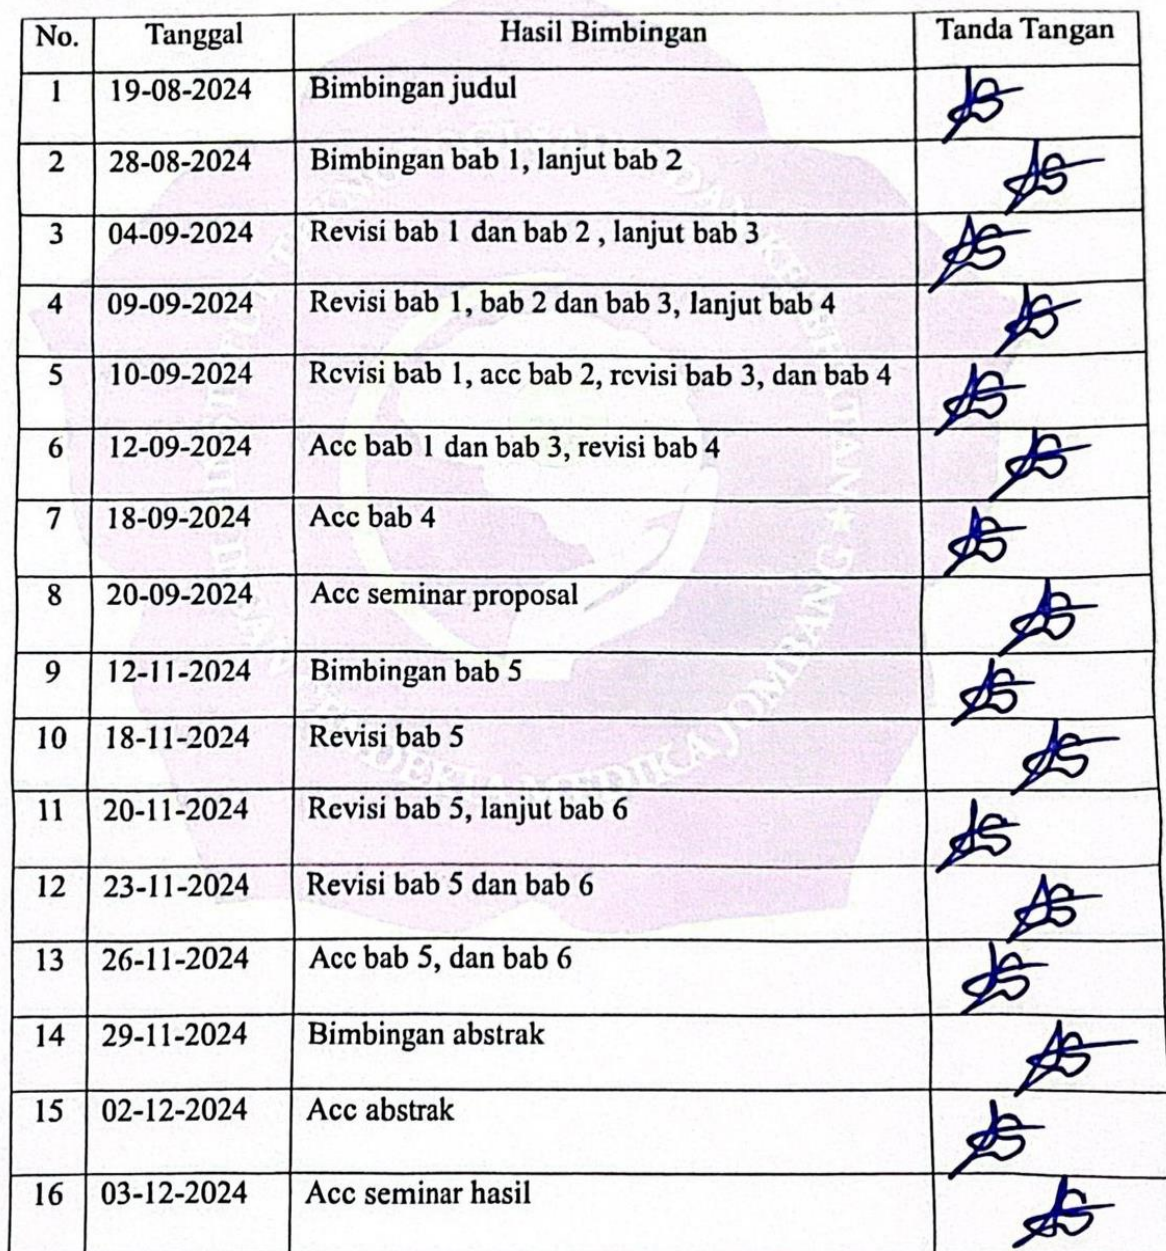 No. Tanggal Hasil Bimbingan Tanda Tangan
1 19-08-2024 Bimbingan judul
2 28-08-2024 Bimbingan bab 1, lanjut bab 2
3 04-09-2024 Revisi bab 1 dan bab 2 , lanjut bab 3
4 09-09-2024 Revisi bab 1, bab 2 dan bab 3, lanjut bab 4
5 10-09-2024 Revisi bab 1, acc bab 2, revisi bab 3, dan bab 4
6 12-09-2024 Acc bab 1 dan bab 3, revisi bab 4
7 18-09-2024 Acc bab 4
8 20-09-2024 Acc seminar proposal
9 12-11-2024 Bimbingan bab 5
10 18-11-2024 Revisi bab 5
11 20-11-2024 Revisi bab 5, lanjut bab 6
12 23-11-2024 Revisi bab 5 dan bab 6
13 26-11-2024 Acc bab 5, dan bab 6
14 29-11-2024 Bimbingan abstrak
15 02-12-2024 Acc abstrak
16 03-12-2024 Acc seminar hasil